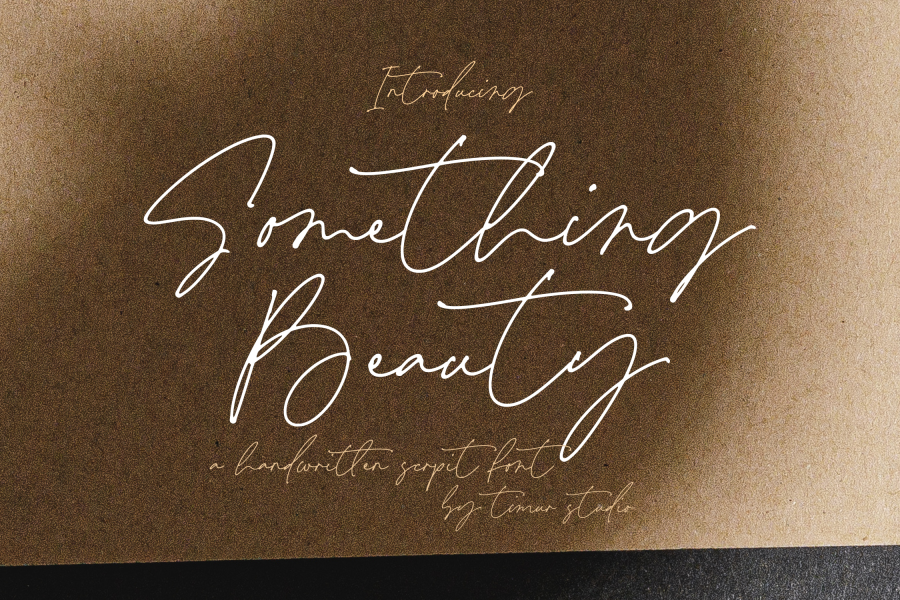 Introducing
Something
Beauty
a handwritten scrpit font
by timur studio